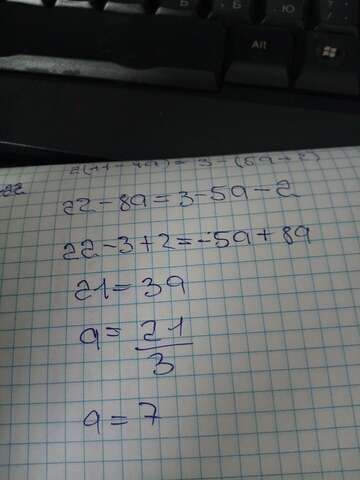 Alt
2(11-4a)=3-(5a+2)
22-8a=3-5a-2
22-3+2=-5a+8a
21=3a
a=21/3
a=7